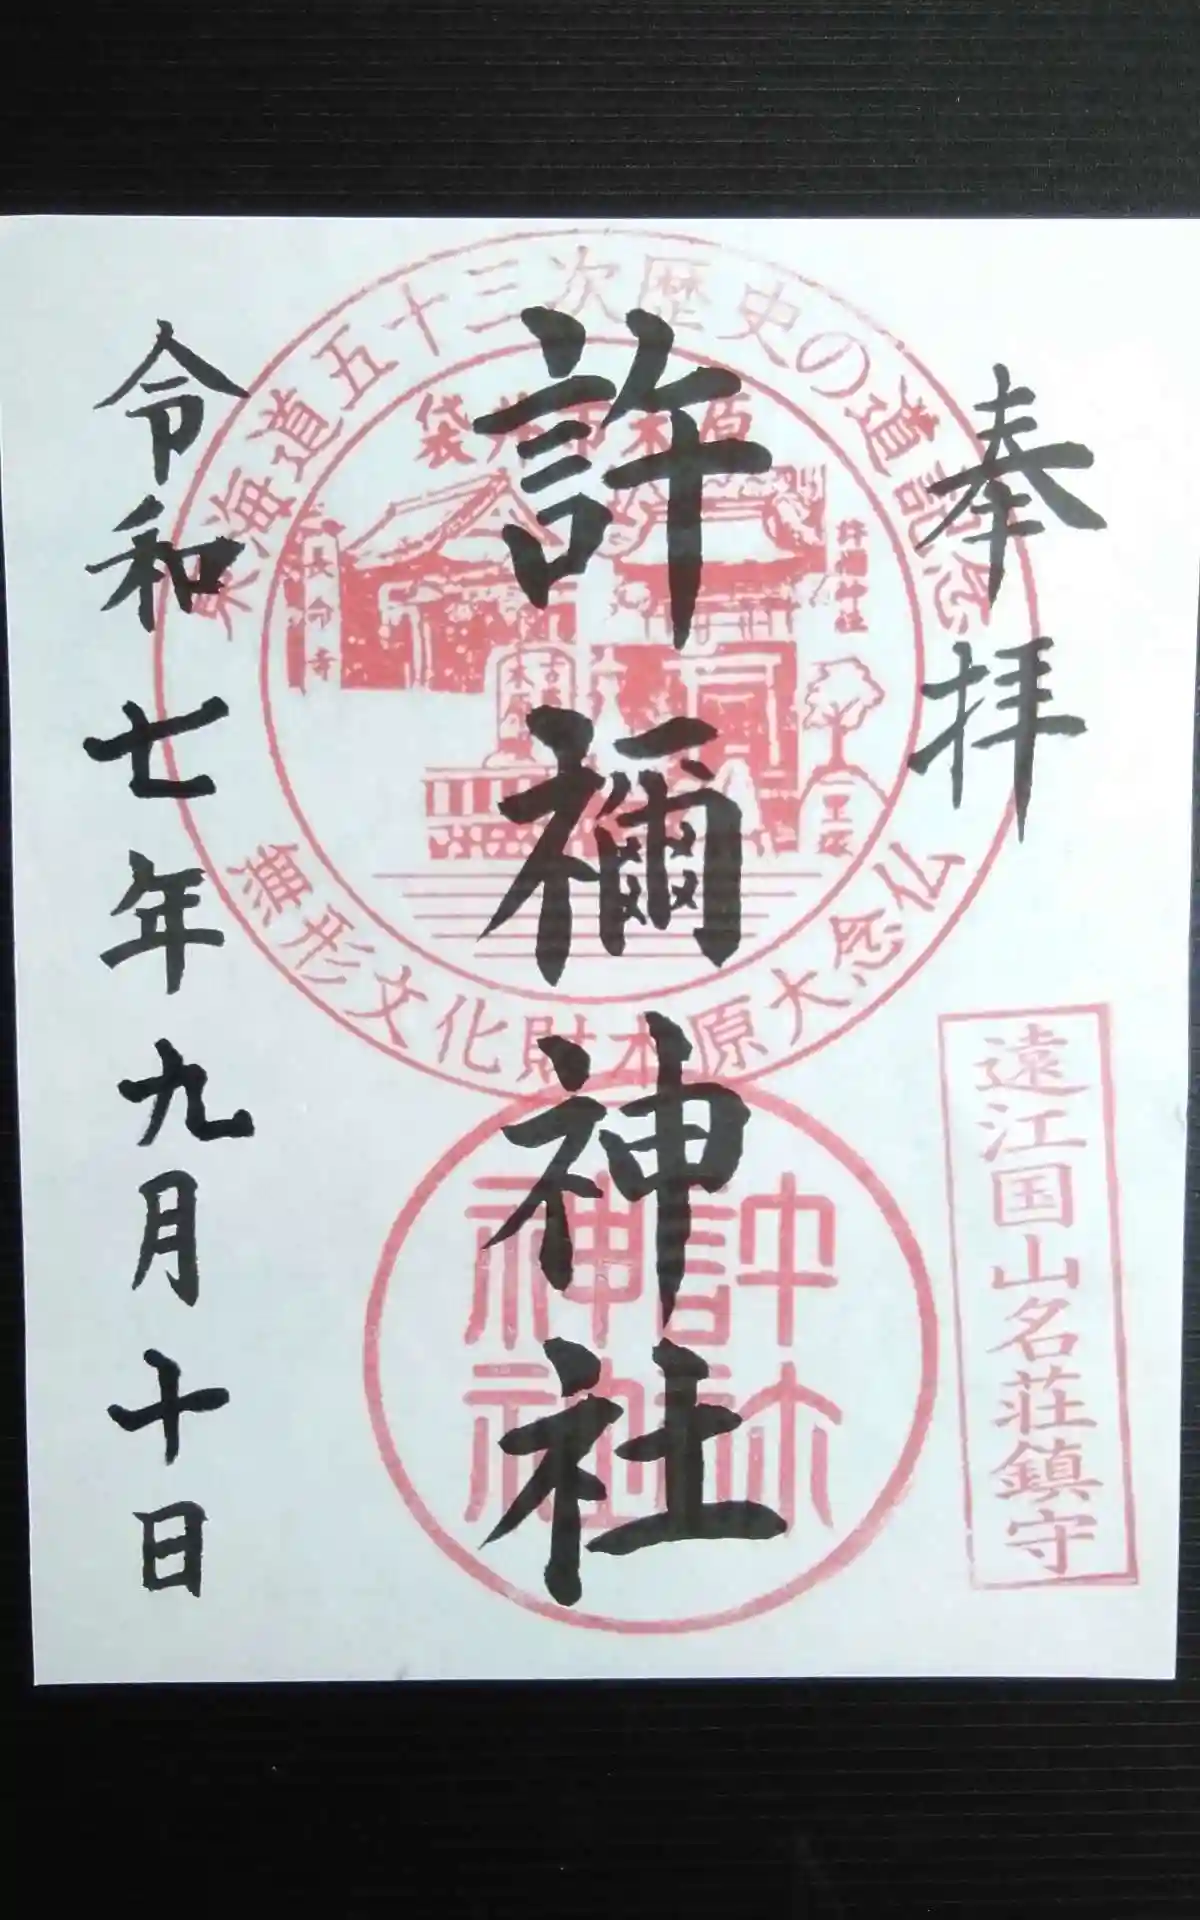 奉拝
遠江国山名荘鎮守
東海道五十三次歴史の道記念
袋井市木原
許禰神社
長命寺
一里塚
無形文化財木原大念仏
許禰神社
令和七年九月十日